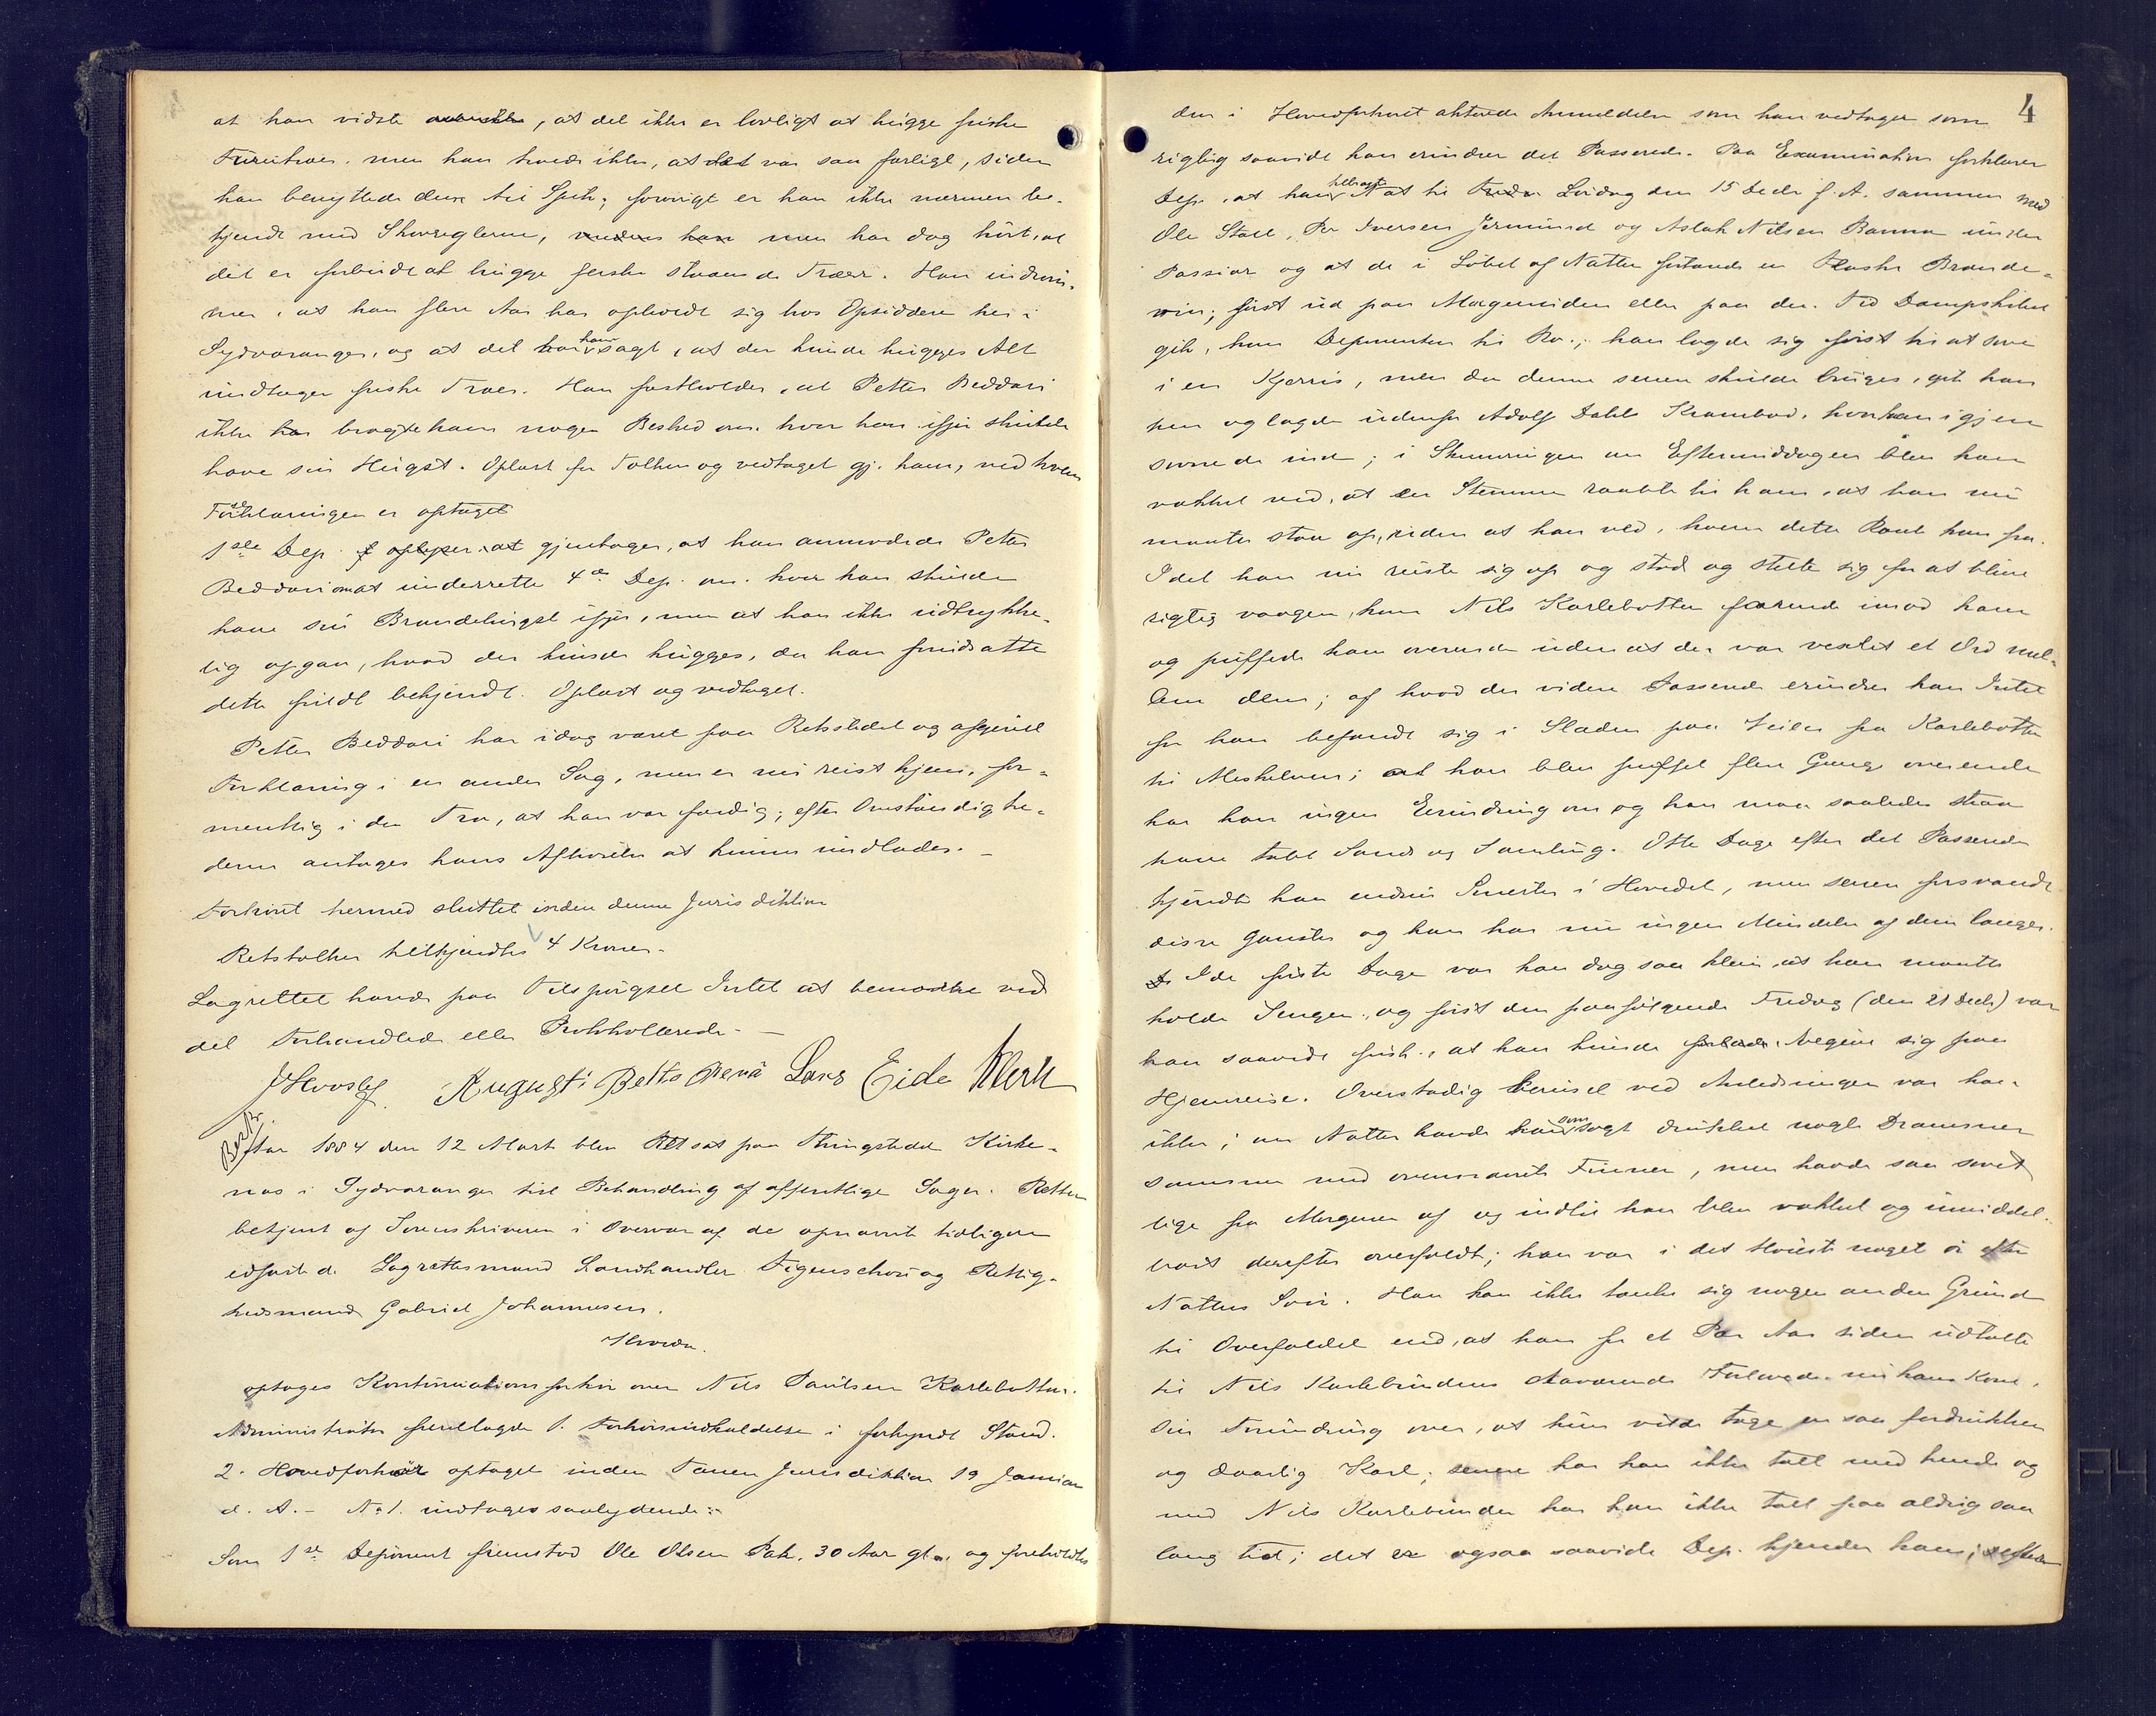 at han vidste, at det ikke er lovligt at hugge friske
Furutræer. men han troede ikke, at det var saa farligt, siden
han benyttede dem til; forøvrigt er han ikke nærmere be-
kjendt med Skovreglerne, men har dog hørt, at
det er forbudt at hugge ferske staaende Træer. Han indrøm-
mer, at han flere Aar har opholdt sig hos Opsiddere her i
Sydvaranger, og at det har han sagt, at der kunde hugges Alt
undtagen friske Træer. Han fastholder, at Petter Beddari
ikke har bragt ham nogen Besked om, hvor han ifjor skulde
have sin Hugst. Oplæst for Tolken og vedtaget gj. ham, ved hvem
Forklaringen er optaget
1ste Dep. gjentager, at han anmodede Petter
Beddari om at underrette 4de Dep. om. hvor han skulde
have sin Brændehugst ifjor, men at han ikke udtrykke-
lig opgav, hvad der kunde hugges, da han forudsatte
dette fuldt bekjendt. Oplæst og vedtaget.
Petter Beddari har idag været paa Retsstedet og afgivet
Forklaring i en anden Sag, men er nu reist hjem, for-
mentlig i den Tro, at han var færdig; efter Omstændighe-
derne antages hans Afhørelse at kunne undlades. –
Forhøret hermed sluttet inden denne Jurisdiktion
Retstolken tilkjendtes 4 Kroner.
Lagrettet havde paa Tilspørgsel Intet at bemærke ved
det Forhandlede eller Protokollerede. –
August Belto Lars Eide Klerk
Aar 1884 den 12 Marts blev Ret sat paa Thingstedet Kirke-
næs i Sydvaranger til Behandling af offentlige Sager. Retten
betjent af Sorenskriveren i Overvær af de opnævnte tidligere
edfæstede Lagrettesmænd Landhandler Figenschou og Rettig-
hedsmand Gabriel Johannesen.
Hvorda.
optages Kontinuationsforhør over Nils Paulsen Karlebotten.
Administrator fremlagde 1. Forhørsindkaldelse i forkyndt Stand.
2. Hovedforhør optaget inden Tanen Jurisdiktion 19 Januar
d. A. – No 1. indtages saalydende:
Som 1ste Deponent fremstod Ole Olsen Pak. 30 Aar gl. og foreholdtes
4
den i Hovedforhøret akterede Anmeldelse som han vedtager som
rigtig saavidt han erindrer det Passerede. Paa Examination forklarer
Dep. at han tilbragte Nat til Lørdag den 15 Decbr f. A. sammen med
Ole Stall, Per Iversen Jermund og Aslak Nilsen Banna under
Passiar og at de i Løbet af Natten fortærede en Flaske Brænde-
vin; først ud paa Morgensiden eller paa den Tid Dampskibet
gik, kom Deponenten til Ro; han lagde sig først til at sove
i en Kjerris, men da denne senere skulde bruges, gik han
hen og lagde udenfor Adolf Dahls Krambod, hvor han igjen
sovnede ind; i Skumringen om Eftermiddagen blev han
vækket ved, at en Stemme raabte til ham, at han nu
maatte staa op, uden at han ved, hvem dette Raab kom fra.
Idet han nu reiste sig op og stod og strøg sig for at blive
rigtig vaagen, kom Nils Karlebotten farende imod ham
og puffede ham overende uden at der var vexlet et Ord mel-
lem dem; af hvad der videre Passerede erindrer han Intet
før han befandt sig i Slæden paa Veien fra Karlebotten
til Meskelven; at han blev puffet flere Gange overende
har han ingen Erindring om og han maa saaledes straa
have tabt Sands og Samling. Otte Dage efter det Passerede
kjendte han endnu Smerter i Hovedet, men senere forsvandt
disse ganske og han har nu ingen Mindelse af dem længer.
I de første Dage var han dog saa klein at han maatte
holde Sengen, og først den paafølgende Fredag (den 21 Decbr) var
han saavidt frisk, at han kunde begive sig paa
Hjemreise. Overstadig beruset ved Anledningen var han
ikke; om Natten havde han som sagt drukket nogle Drammer
sammen med ovennævnte Finner, men havde saa sovet
lige fra Morgenen af og indtil han blev vækket og umiddel-
bart derefter overfaldt; han var i det Høieste noget ør efter
Nattens Svir. Han kan ikke tænke sig nogen anden Grund
til Overfaldet end, at han for et Par Aar siden udtalte
til Nils Karlebundens daværende Forlovede nu hans Kone,
sin Forundring over, at hun vilde tage en saa fordrukken
og daarlig Karl; senere har han ikke talt med hende og
med Nils Karlebunden har han ikke talt paa aldrig saa
lang Tid; det er ogsaa saavidt Dep. kjender ham,